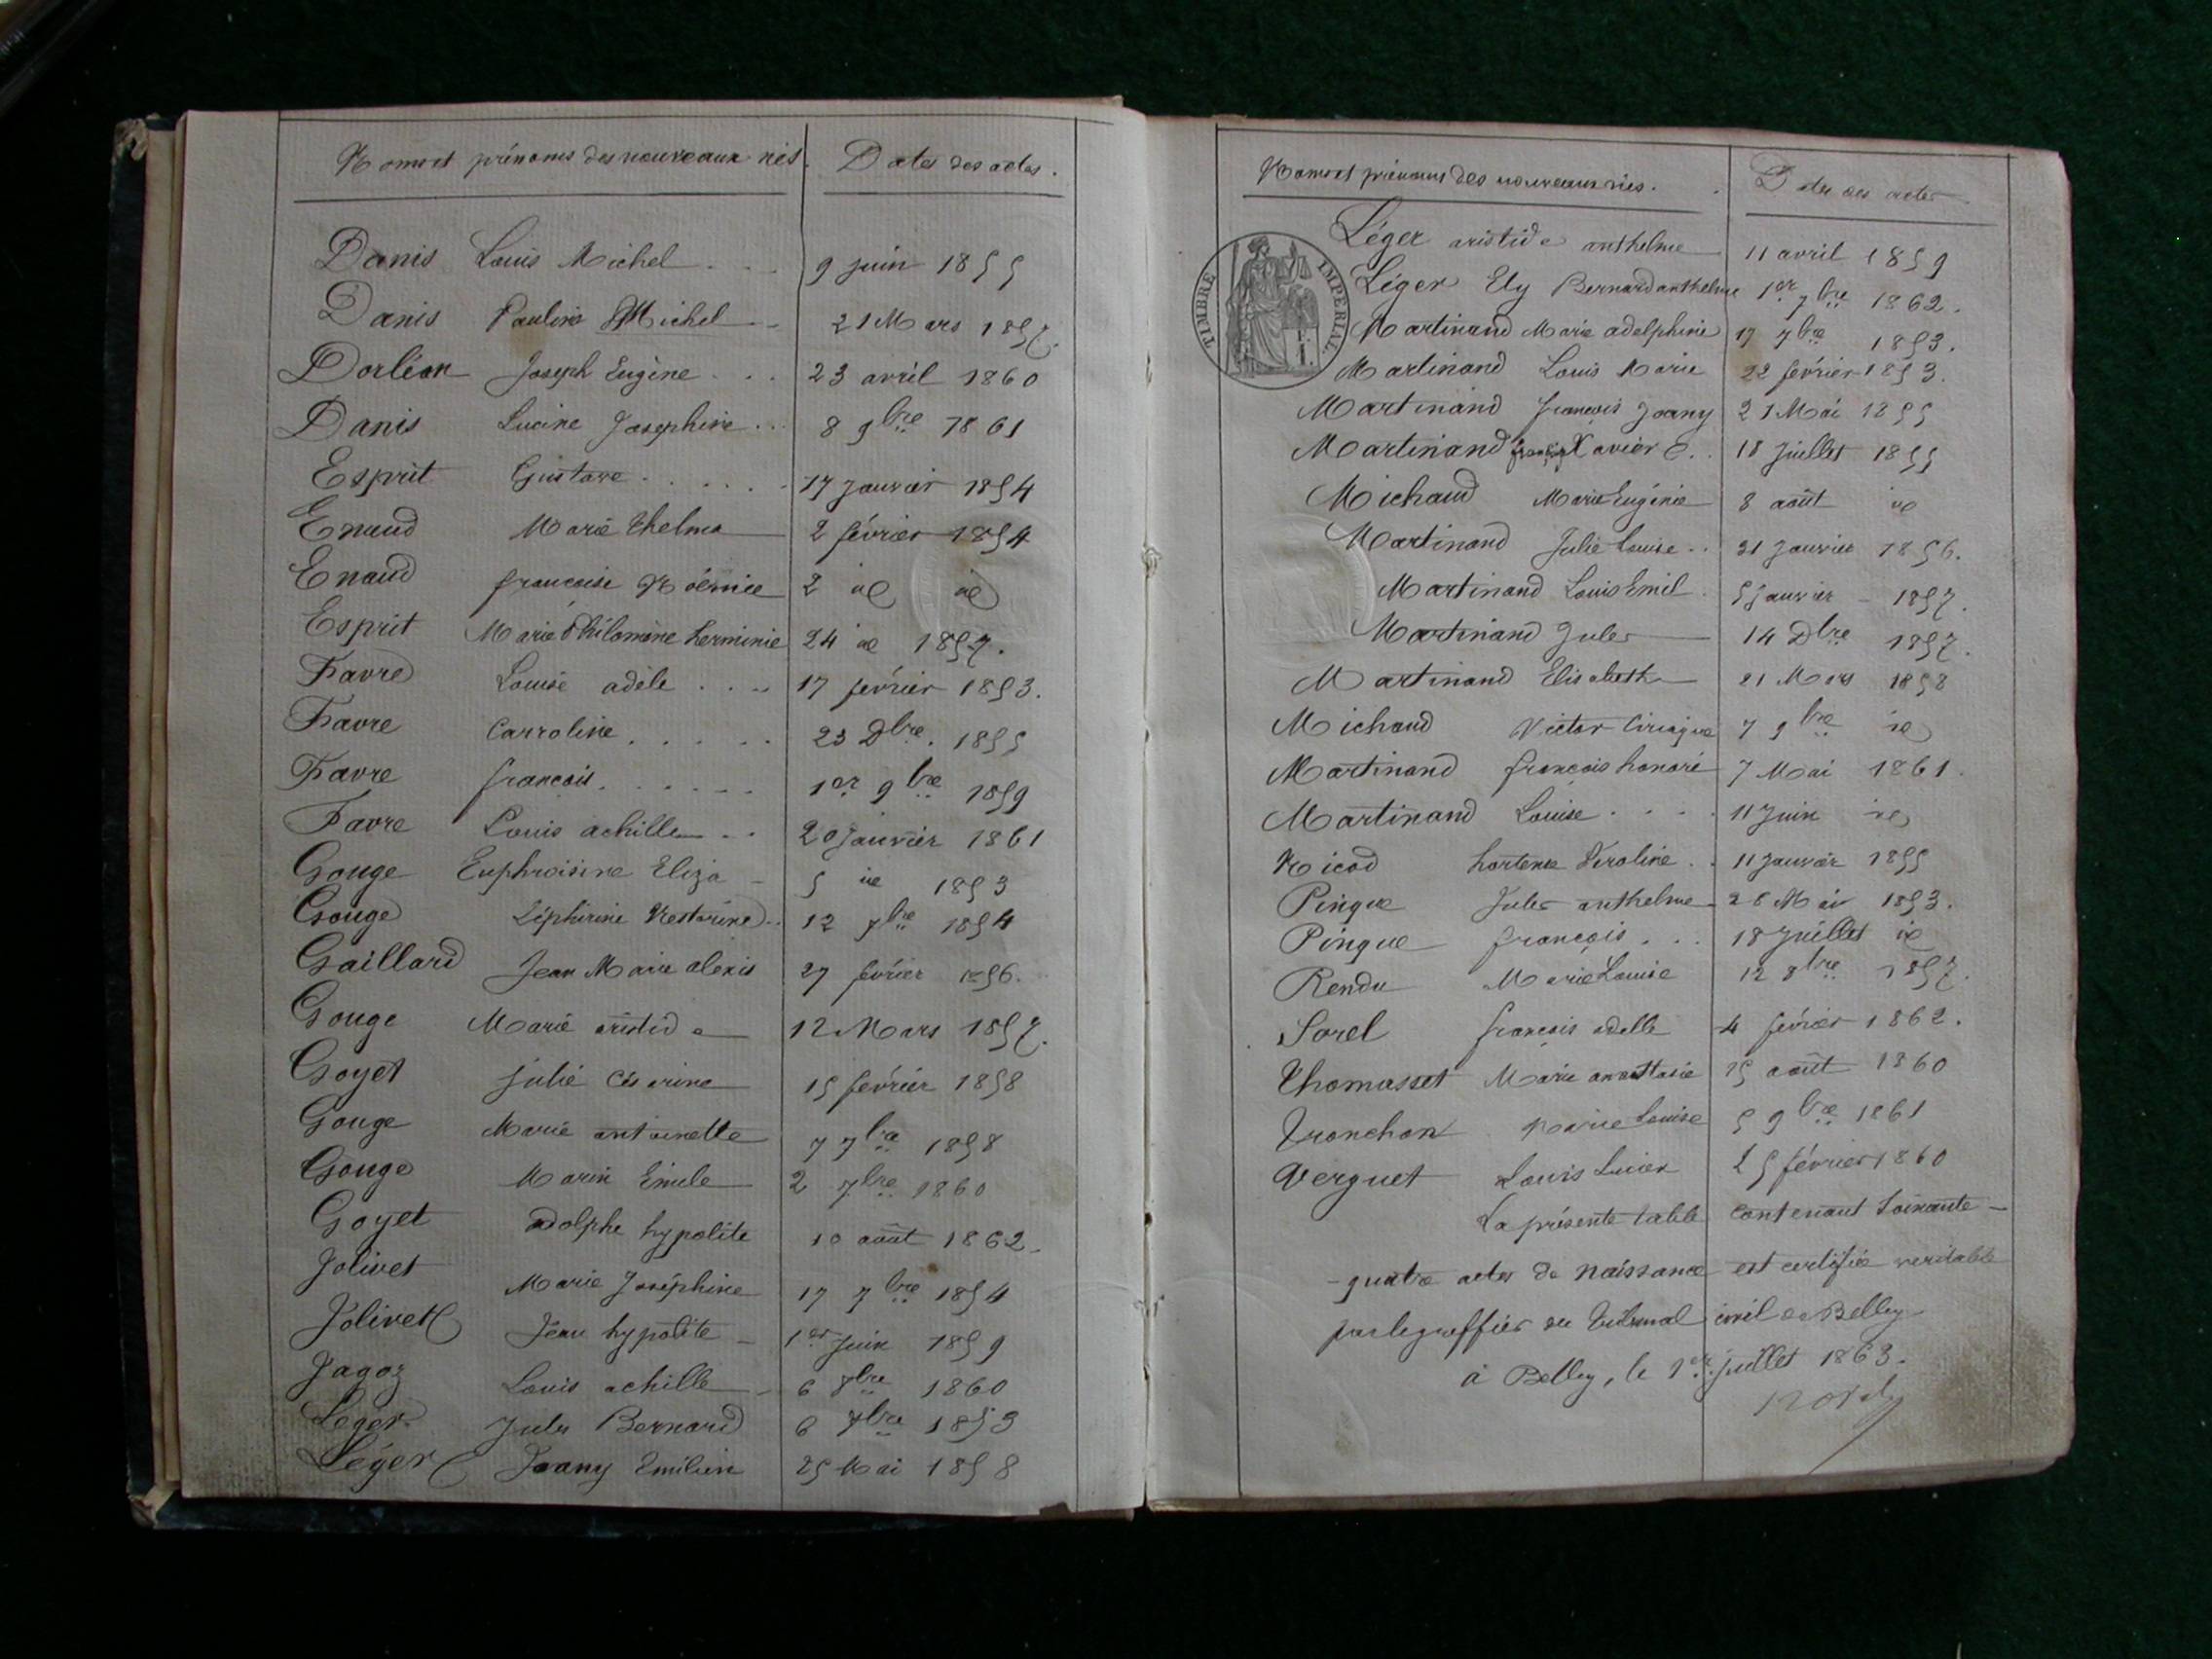 Noms et prénoms des nouveaux nés. Dates des actes.
Danis Louis Michel . . . 9 juin 1855
Danis Pauline Michel 21 Mars 1857.
Dorléan Joseph Eugène . . . 23 avril 1860
Danis Lucine Josephine . . . 8 9bre 1861
Esprit Gustave . . . . . . 17 Janvier 1854
Enaud Marie thelma 2 février 1854
Enaud françoise 2 id id
Esprit Marie Philomène herminie 24 id 1857.
Favre Louise adèle . . . . 17 février 1853.
Favre Carroline . . . . . 23 Dbre. 1855
Favre françois . . . . . . 1er 9bre 1859
Favre Louis achille . . 20 Janvier 1861
Gouge Euphroisine Eliza 5 id 1853
Gouge Zéphirine 12 7bre 1854
Gaillard Jean Marie alexis 27 février 1856.
Gouge Marie aristide 12 Mars 1857.
Goyet julie Césarine 15 février 1858
Gouge Marie antoinette 7 7bre 1858
Gouge Marie Emile 2 7bre 1860
Goyet adolphe hypolite 10 août 1862.
Jolivet Marie Joséphine 17 7bre 1854
Jolivet Jean hypolite 1er juin 1859
Jagoz Louis achille 6 8bre 1860
Leger Jules Bernard 6 7bre 1853
Léger Joany Emilien 25 Mai 1858
Noms et prénoms des nouveaux nés. Dates des actes
Léger aristide anthelme 11 avril 1859
TIMBRE IMPERIAL
Léger Ely Bernard anthelme 1er 7bre 1862.
Martinand Marie adelphine 17 7bre 1853.
Martinand Louis Marie 22 février 1853.
Martinand françois Joany 21 Mai 1855
Martinand françois Xavier E. . . 18 Juillet 1855
Michaud Marie Eugénie 8 août id
Martinand Julie Louise . . 31 Janvier 1856.
Martinand Louis Emil . 5 Janvier 1857.
Martinand Jules 14 Dbre 1857.
Martinand Elisabeth 21 Mars 1858
Michaud Victor Ciriaque 7 9bre id
Martinand françois honoré 7 Mai 1861.
Martinand Louise . . . . 11 Juin id
Nicod hortense . . 11 Janvier 1855
Pingue Jules anthelme 28 Mai 1853.
Pingue françois . . . 18 Juillet id
Rendu Marie Louise 12 8bre 1857.
Sorel françois adelle 4 février 1862.
Thomasset Marie anasttasie 25 août 1860
Tronchon Marie Louise 5 9bre 1861
Verguet Louis Lucien 25 février 1860
La présente table contenant soixante-
-quatre actes de naissance est certifiée veritable
par le greffier du tribunal civil de Belley
à Belley, le 1er juillet 1863.